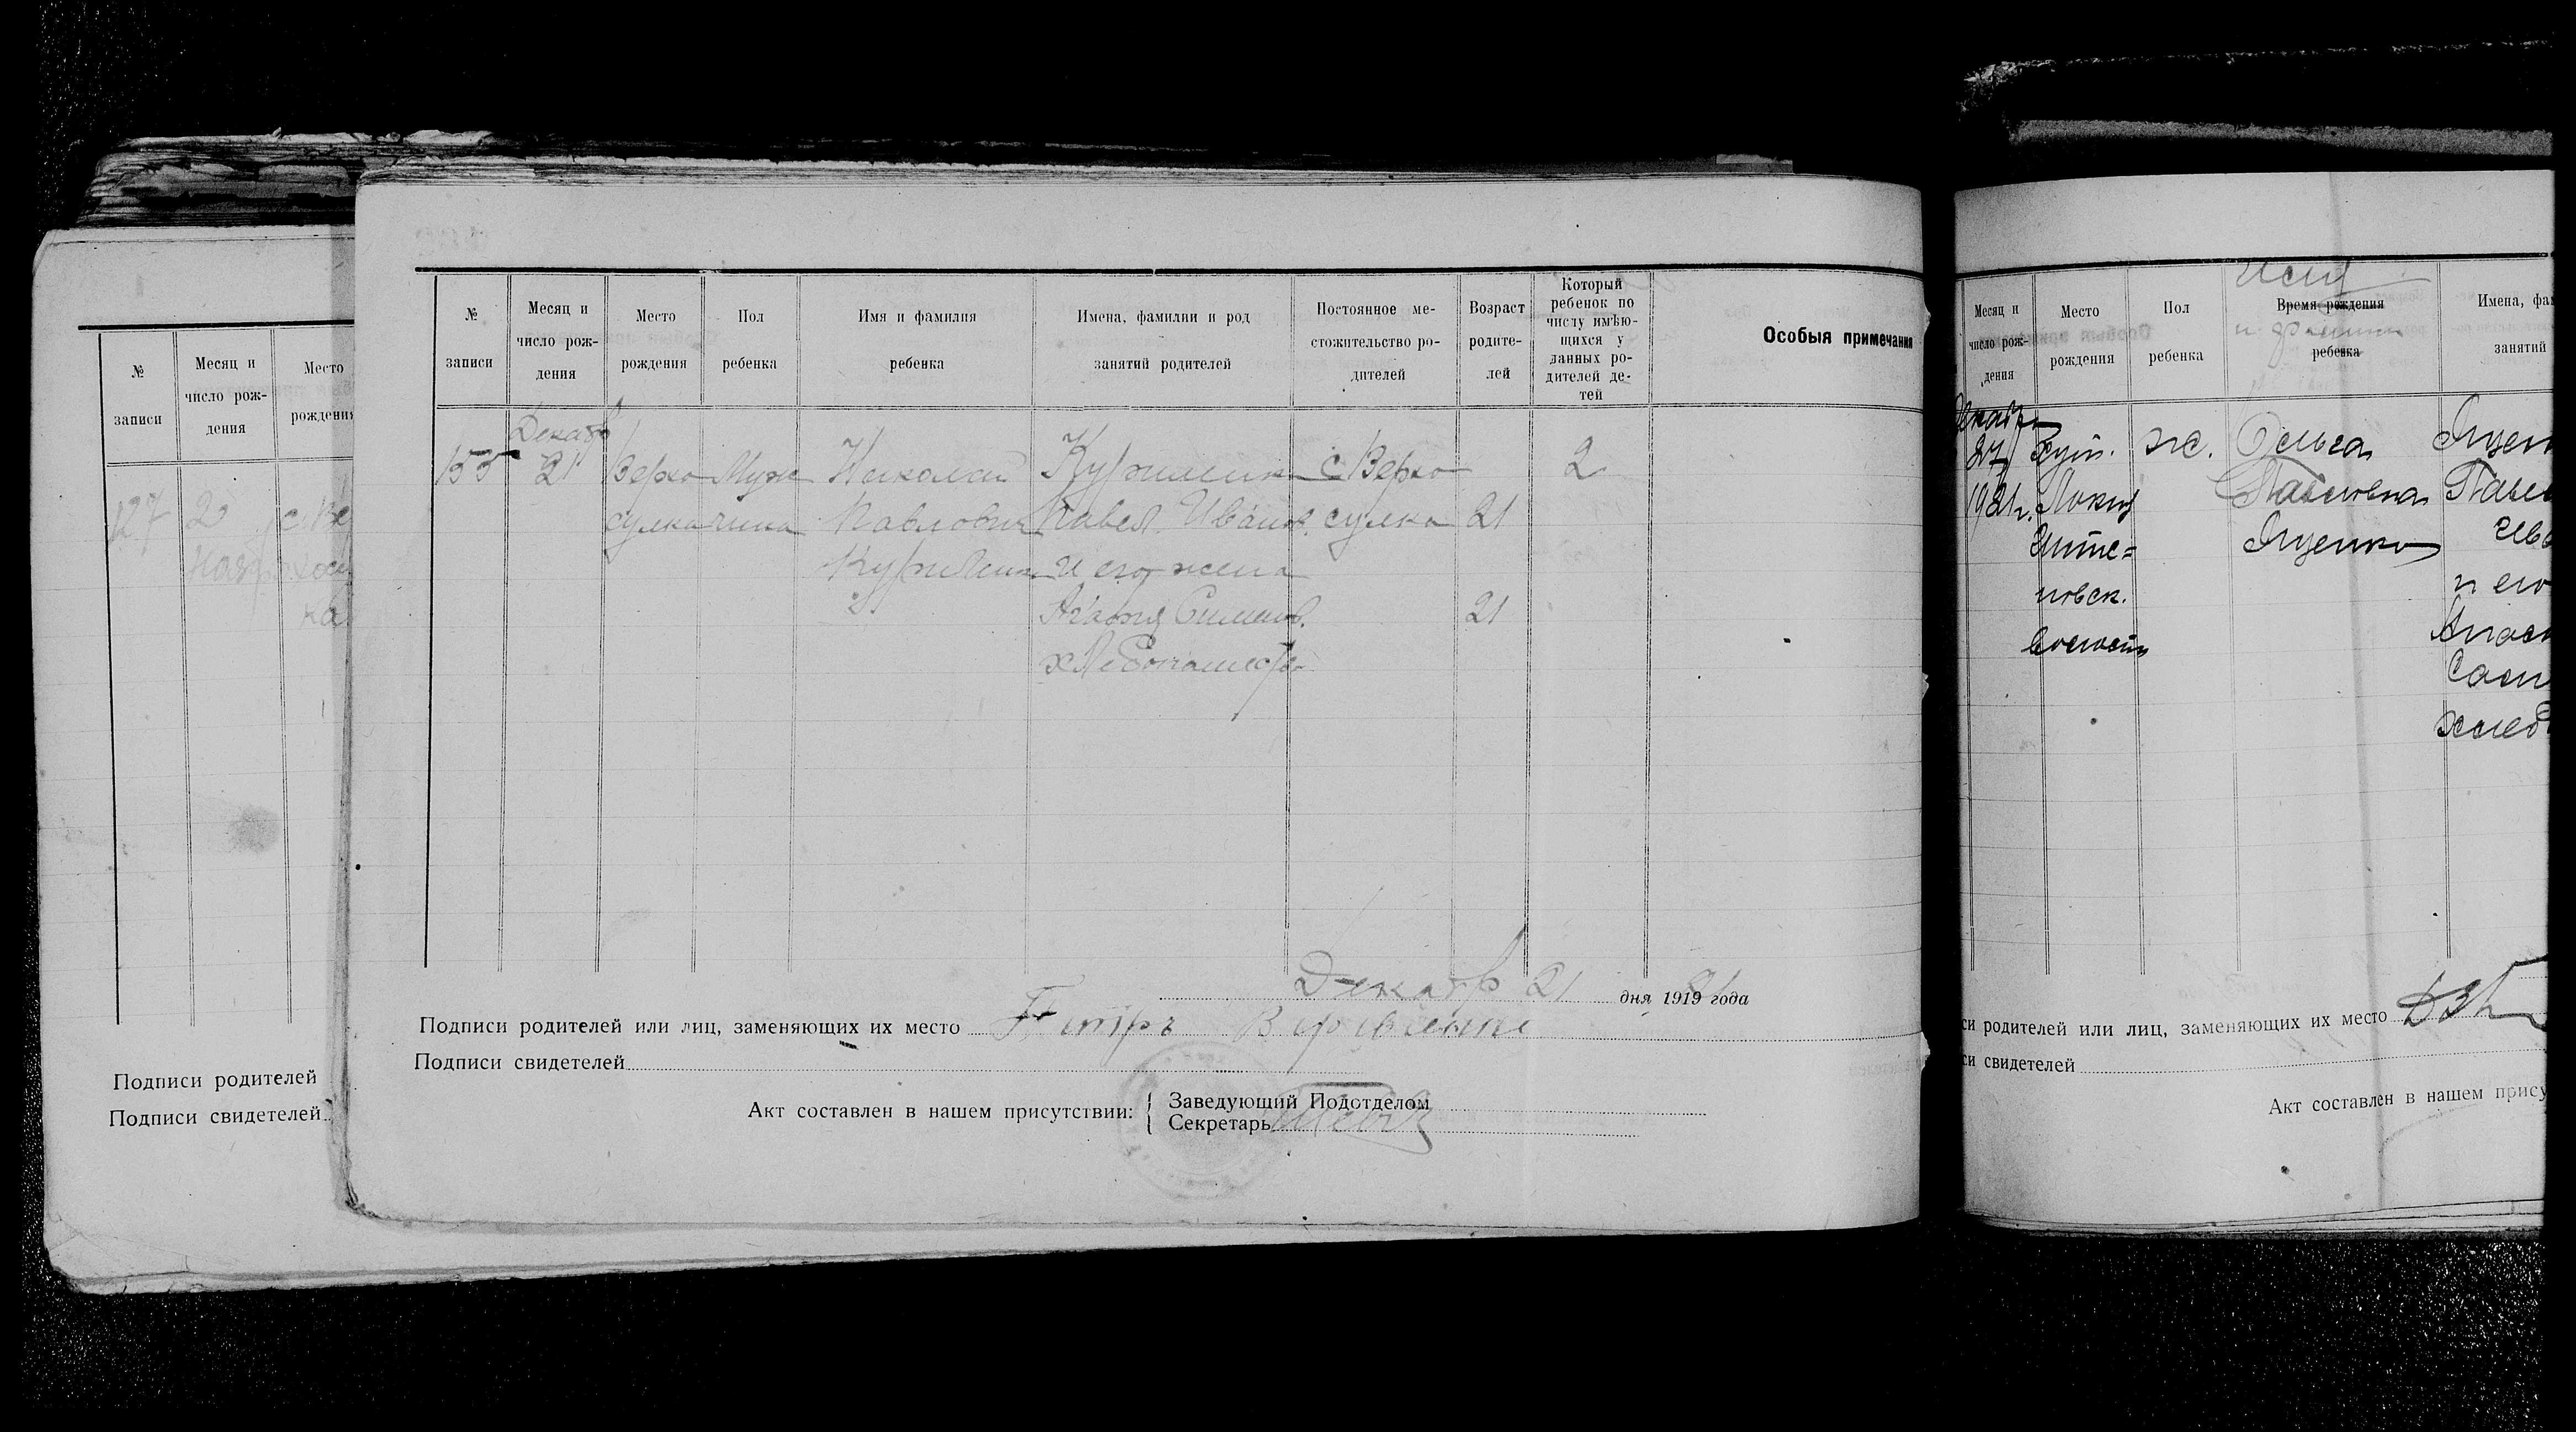 № записи
Месяц и число рождения
Место рождения
127
2
с. Ве
Нояб
рхосу
ка
Подписи родителей
Подписи свидетелей
№ записи
Месяц и число рож-дения
Место рождения
Пол ребенка
Имя и фамилия ребенка
Имена, фамилии и род занятий родителей
Постоянное ме-стожительство ро-дителей
Возраст родите-лей
Который ребенок по числу имѣю-щихся у данных ро-дителей де-тей
Особыя примечания
Декабр
155 21 Верхо Муж Николай Куриленк с Верхо 2
сулка чина Павлович Павел Иванов. сулка 21
Куриленк и его жена
Агафия Сименов. 21
хлебопашест
Декабр 21 дня 1919 21 года
Подписи родителей или лиц, заменяющих их место Петръ
Подписи свидетелей
Акт составлен в нашем присутствии:
Заведующий Подотделом
Секретарь
Месяц и число рож-дения
Место рождения
Пол ребенка
Имя
Время рождения
и фамилия
ребенка
Имена, фа
занятий
Декабр
27 Хут. ж. Ольга Яцен
1921г. Локня Павловна Павел
Яценко Ива
новск. и его
волости
хлеб
си родителей или лиц, заменяющих их место
си свидетелей
Акт составлен в нашем прису